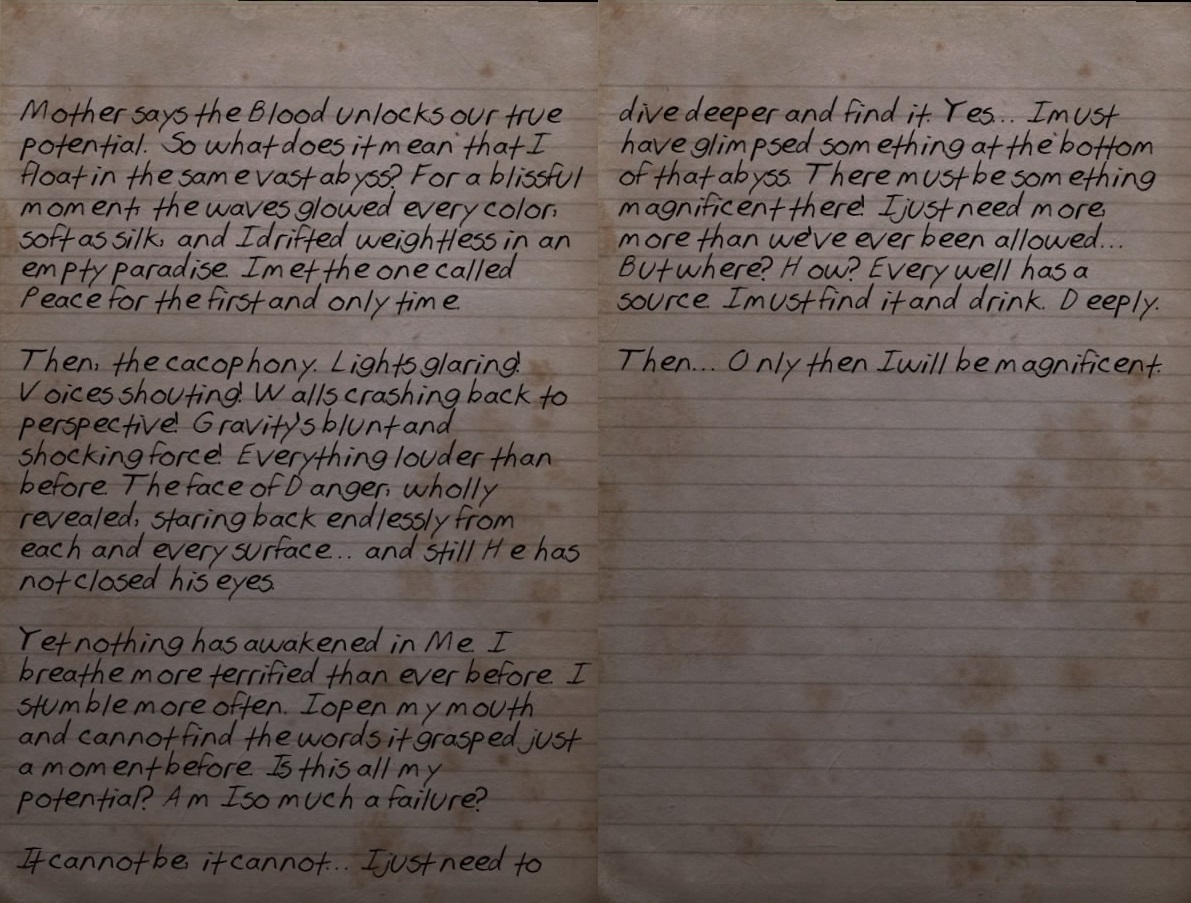 Mother says the Blood unlocks our true
potential. So what does it mean that I
float in the same vast abyss? For a blissful
moment, the waves glowed every color,
soft as silk, and I drifted weightless in an
empty paradise. I met the one called
Peace for the first and only time.
Then, the cacophony. Lights glaring!
Voices shouting! Walls crashing back to
perspective! Gravity's blunt and
shocking force! Everything louder than
before. The face of Danger, wholly
revealed, staring back endlessly from
each and every surface... and still He has
not closed his eyes.
Yet nothing has awakened in Me. I
breathe more terrified than ever before. I
stumble more often. I open my mouth
and cannot find the words it grasped just
a moment before. Is this all my
potential? Am I so much a failure?
It cannot be, it cannot... I just need to
dive deeper and find it. Yes... I must
have glimpsed something at the bottom
of that abyss. There must be something
magnificent there! I just need more,
more than we've ever been allowed...
But where? How? Every well has a
source. I must find it and drink. Deeply.
Then... Only then I will be magnificent.